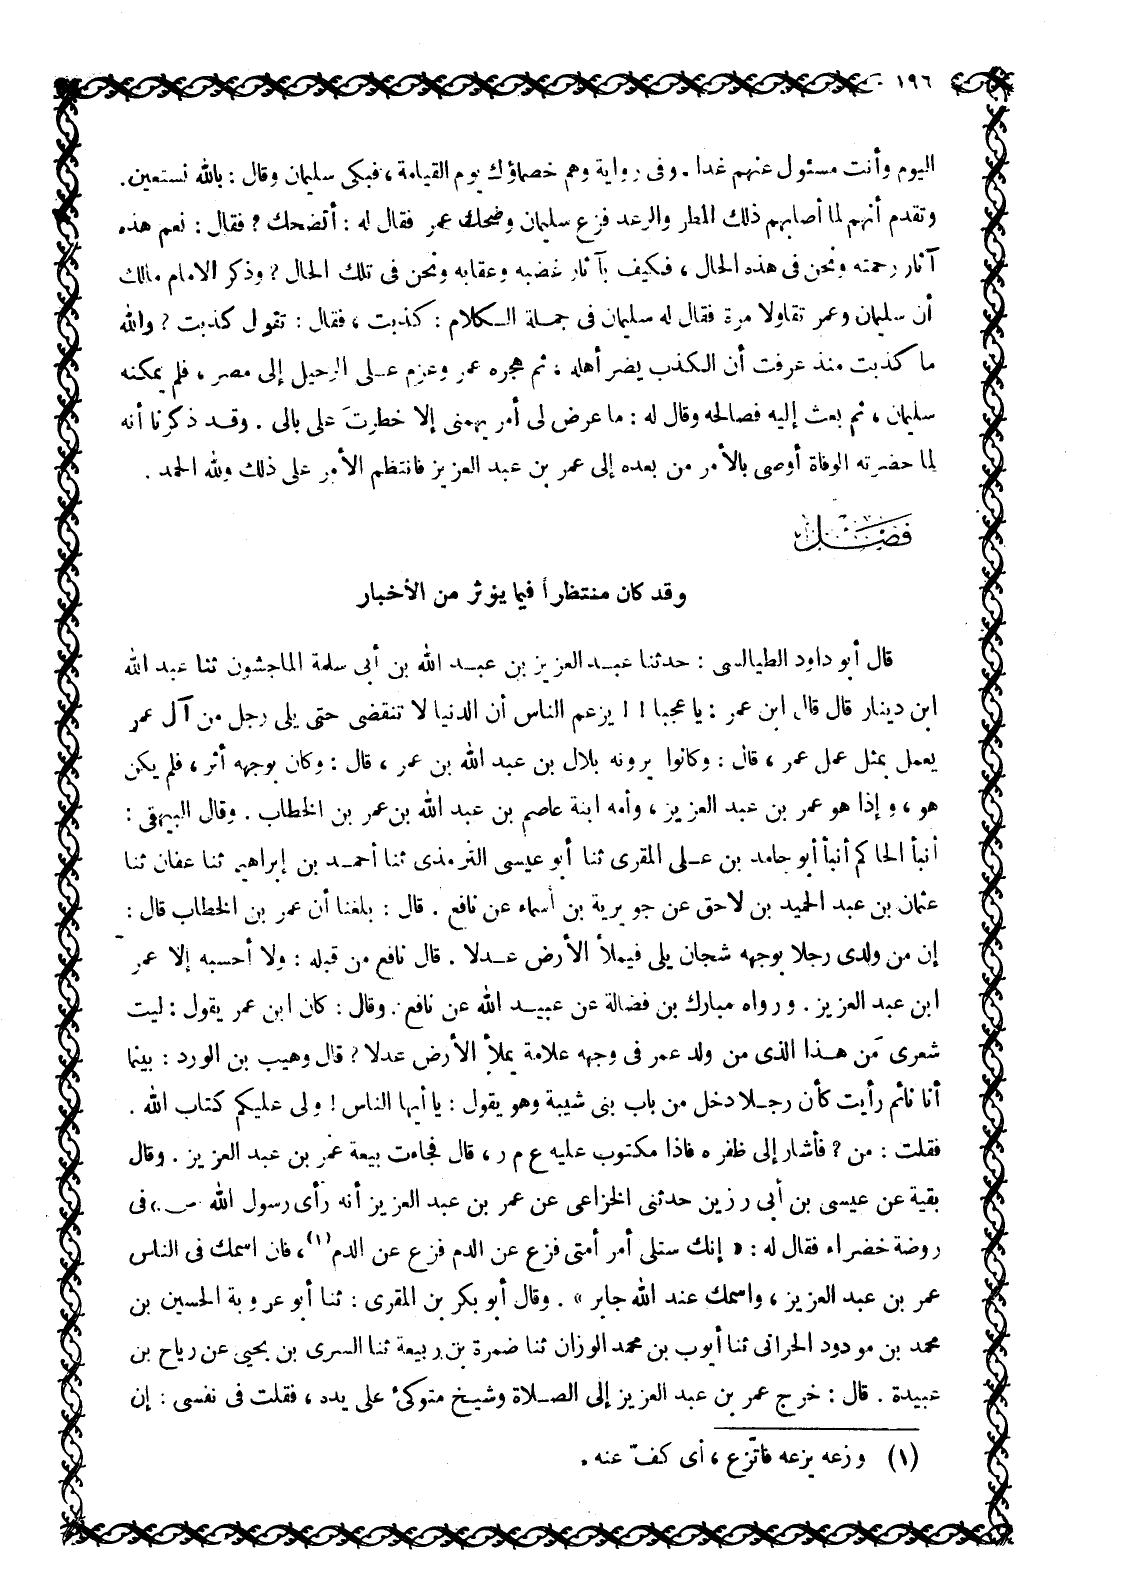 ١٩٦
اليوم وأنت مسئول عنهم غدا . وفى رواية وهم خصماؤك يوم القيامة ، فبكى سليمان وقال : بالله نستعين .
وتقدم أنهم لما أصابهم ذلك المطر والرعد فزع سليمان وضحك عمر فقال له : أتضحك ؟ فقال : نعم هذه
آثار رحمته ونحن فى هذه الحال ، فكيف بآثار غضبه وعقابه ونحن فى تلك الحال ؟ وذكر الامام مالك
أن سليمان وعمر تقاولا مرة فقال له سليمان فى جملة الكلام : كذبت ، فقال : تقول كذبت ؟ والله
ما كذبت منذ عرفت أن الكذب يضر أهله ، ثم هجره عمر وعزم على الرحيل إلى مصر ، فلم يمكنه
سليمان ، ثم بعث إليه فصالحه وقال له : ما عرض لى أمر يهمنى إلا خطرتَ على بالى . وقد ذكرنا أنه
لما حضرته الوفاة أوصى بالأمر من بعده إلى عمر بن عبد العزيز فانتظم الأمر على ذلك ولله الحمد .
فصل
وقد كان منتظراً فيما يؤثر من الأخبار
قال أبو داود الطيالسى : حدثنا عبد العزيز بن عبد الله بن أبى سلمة الماجشون ثنا عبد الله
ابن دينار قال قال ابن عمر : يا عجبا ! ! يزعم الناس أن الدنيا لا تنقضى حتى يلى رجل من آل عمر
يعمل بمثل عمل عمر ، قال : وكانوا يرونه بلال بن عبد الله بن عمر ، قال : وكان بوجهه أثر ، فلم يكن
هو ، وإذا هو عمر بن عبد العزيز ، وأمه ابنة عاصم بن عبد الله بن عمر بن الخطاب . وقال البيهقى :
أنبأ الحاكم أنبأ أبو حامد بن على المقرى ثنا أبو عيسى الترمذى ثنا أحمد بن إبراهيم ثنا عفان ثنا
عثمان بن عبد الحميد بن لاحق عن جويرية بن أسماء عن نافع . قال : بلغنا أن عمر بن الخطاب قال :
إن من ولدى رجلا بوجهه شجان يلى فيملأ الأرض عدلا . قال نافع من قبله : ولا أحسبه إلا عمر
ابن عبد العزيز . ورواه مبارك بن فضالة عن عبيد الله عن نافع . وقال : كان ابن عمر يقول : ليت
شعرى مَن هذا الذى من ولد عمر فى وجهه علامة يملأ الأرض عدلا ؟ قال وهيب بن الورد : بينما
أنا نائم رأيت كأن رجلا دخل من باب بنى شيبة وهو يقول : يا أيها الناس ! ولى عليكم كتاب الله .
فقلت : من ؟ فأشار إلى ظفره فاذا مكتوب عليه ع م ر ، قال فجاءت بيعة عمر بن عبد العزيز . وقال
بقية عن عيسى بن أبى رزين حدثنى الخزاعى عن عمر بن عبد العزيز أنه رأى رسول الله ص فى
روضة خضراء فقال له : « إنك ستلى أمر أمتى فزع عن الدم فزع عن الدم (١) ، فان اسمك فى الناس
عمر بن عبد العزيز ، واسمك عند الله جابر » . وقال أبو بكر بن المقرى : ثنا أبو عروبة الحسين بن
محمد بن مودود الحرانى ثنا أيوب بن محمد الوزان ثنا ضمرة بن ربيعة ثنا السرى بن يحيى عن رياح بن
عبيدة . قال : خرج عمر بن عبد العزيز إلى الصلاة وشيخ متوكئ على يده ، فقلت فى نفسى : إن
(١) وزعه يزعه فاتّزع ، أى كفّ عنه .